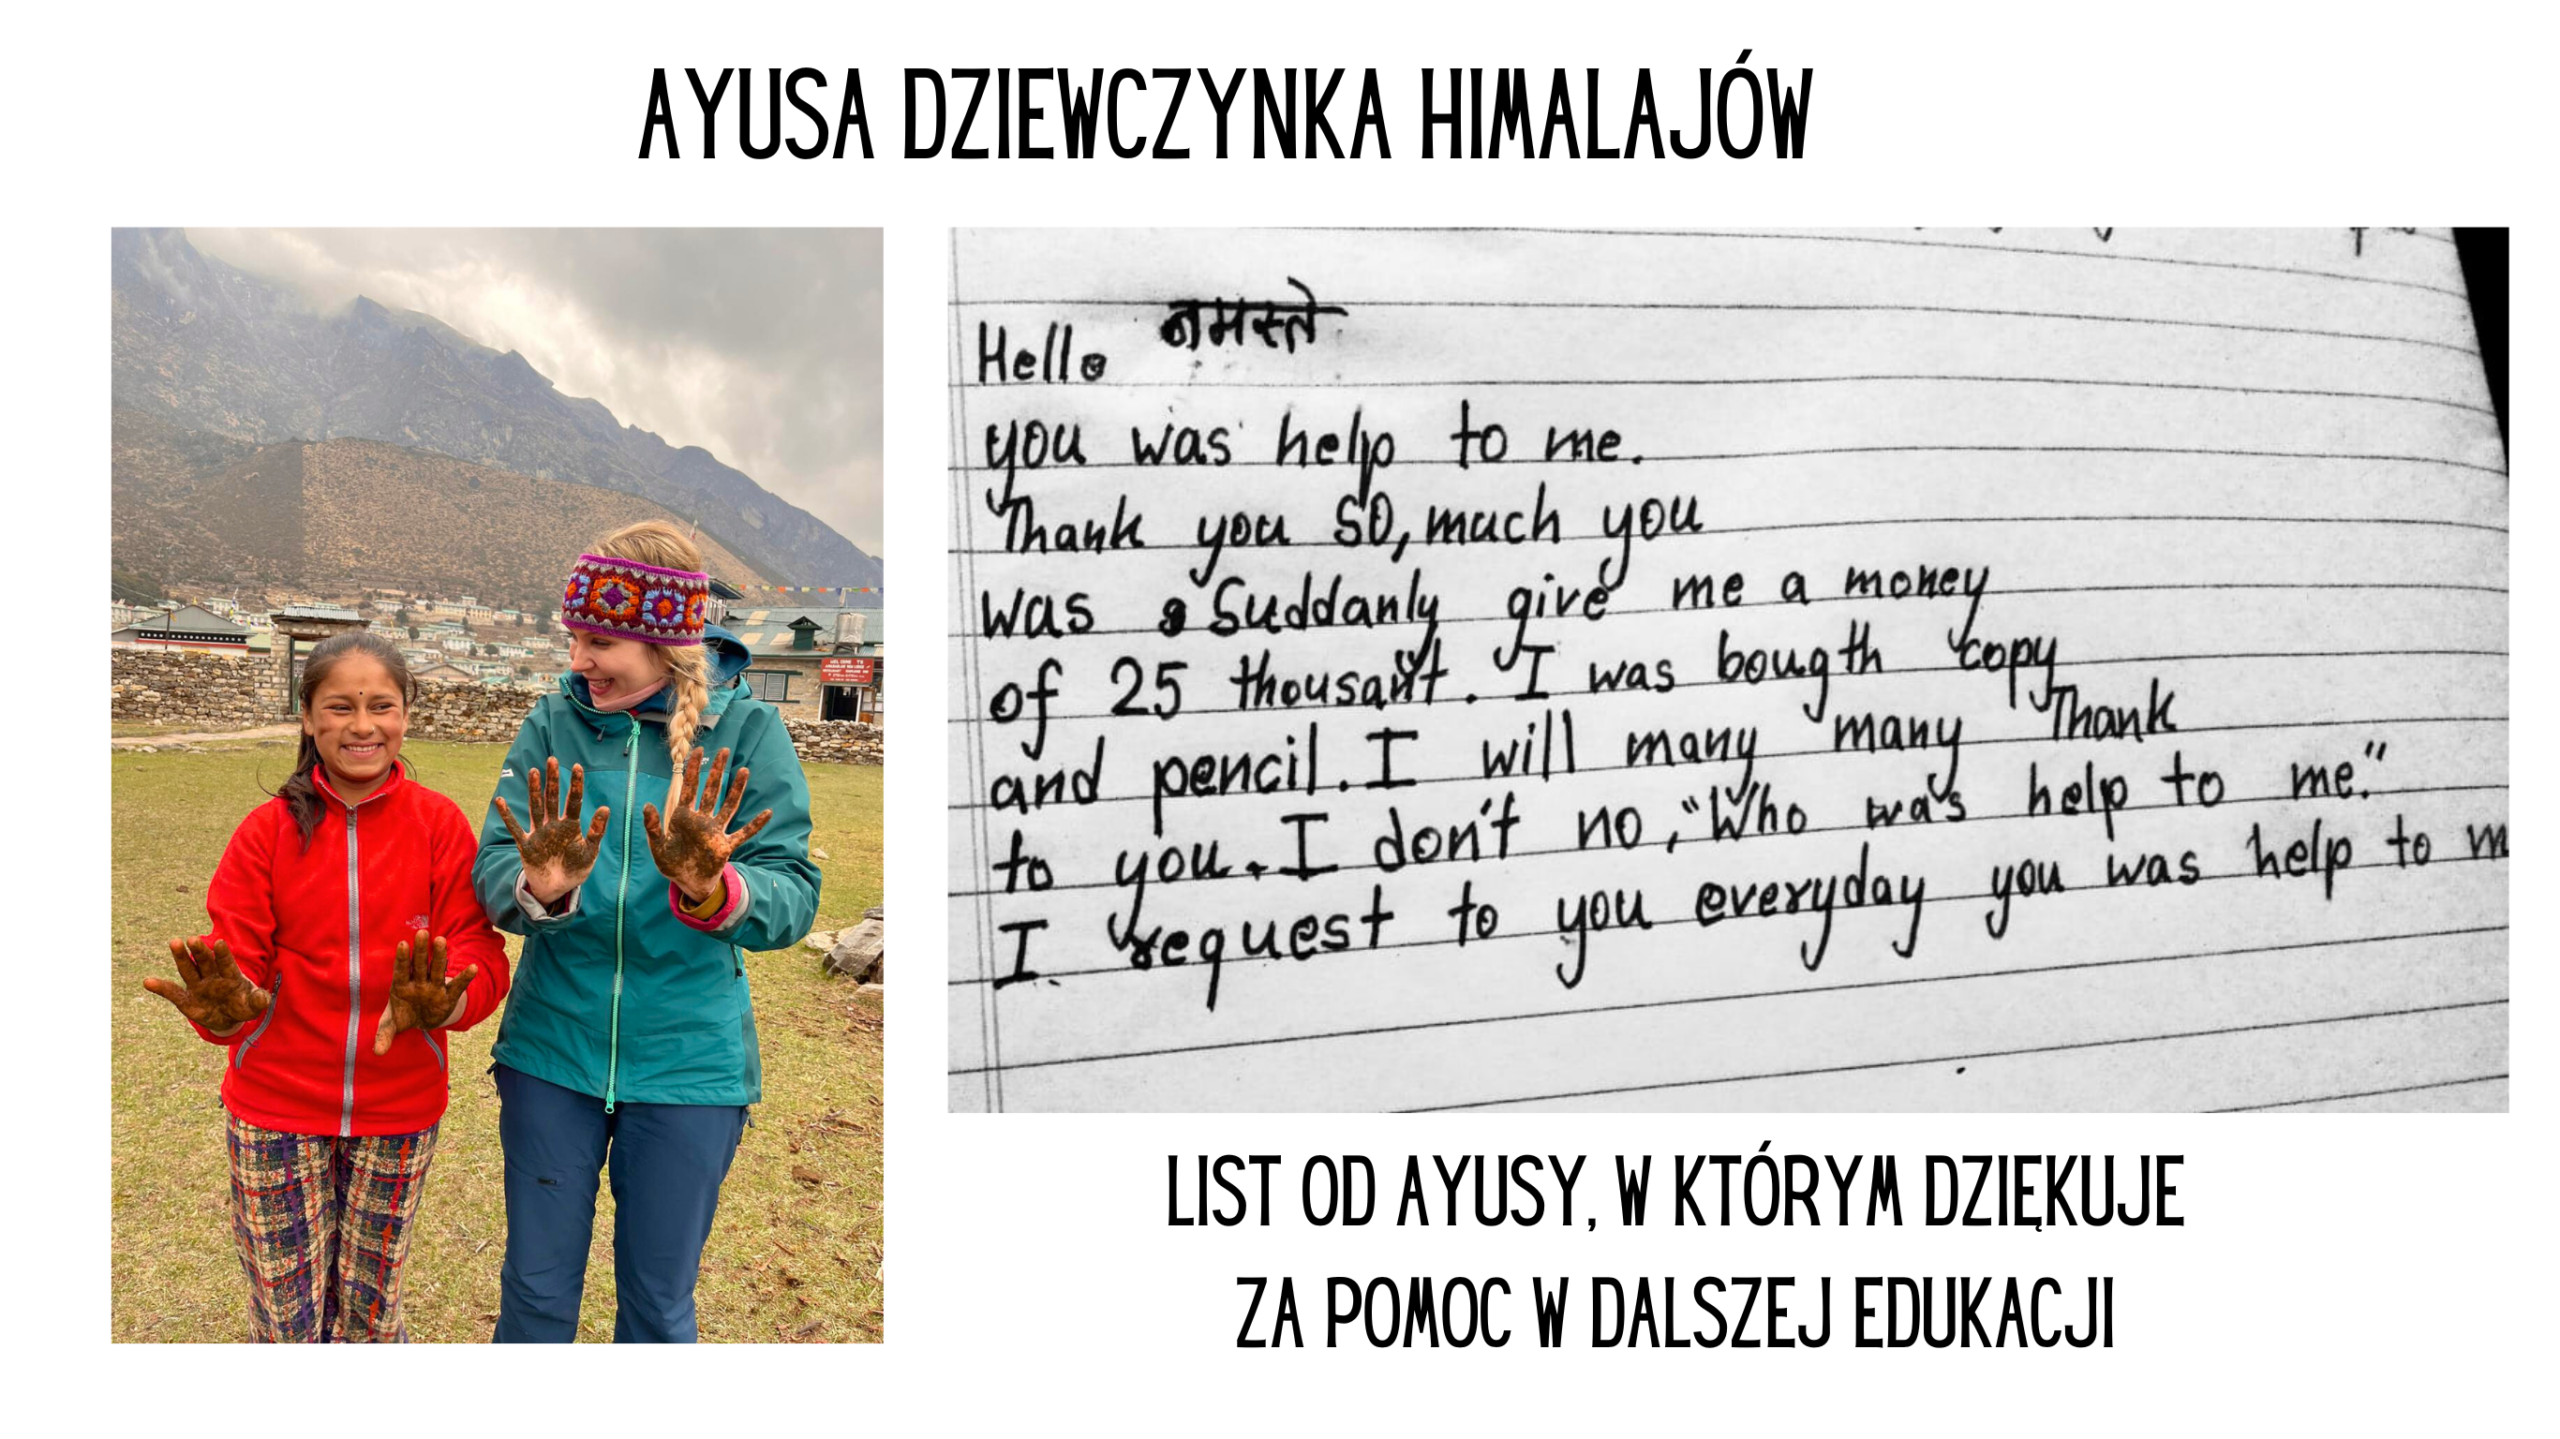 AYUSA DZIEWCZYNKA HIMALAJÓW
WELCOME TO
Hello नमस्ते
you was help to me.
Thank you so, much you
was Suddanly give me a money
of 25 thousant. I was bougth copy
and pencil. I will many many Thank
to you. I don't no, "Who was help to me."
I request to you everyday you was help to m
LIST OD AYUSY, W KTÓRYM DZIĘKUJE
ZA POMOC W DALSZEJ EDUKACJI